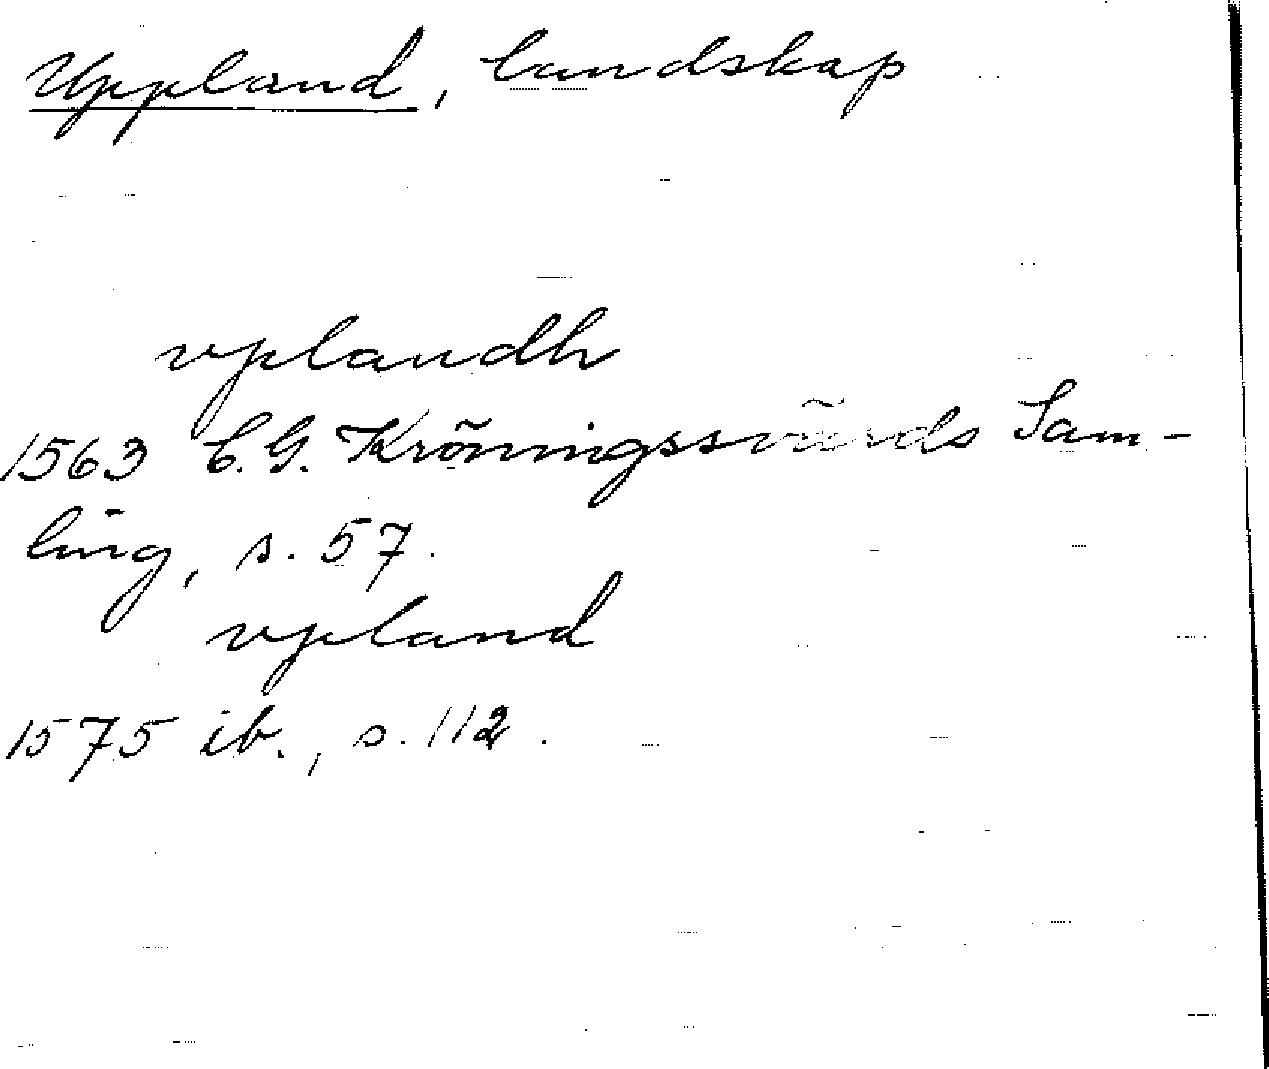 Uppland, landskap
vplandh
1563 C. G. Kröningssvärds Sam-
ling, s. 57.
vpland
1575 ib., s. 112.